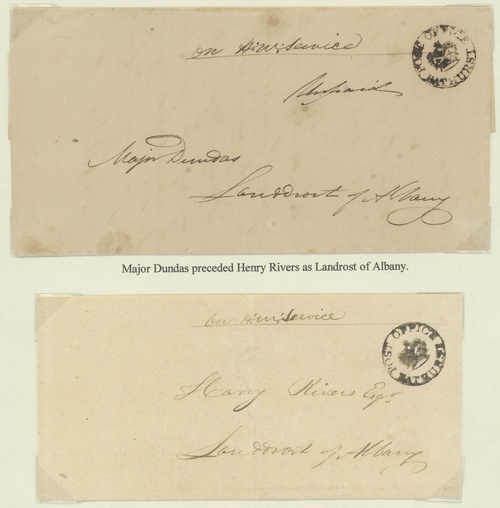 On H: M: Service
POST OFFICE BATHURST
Unpaid
Major Dundas
Landdrost of Albany
Major Dundas preceded Henry Rivers as Landrost of Albany.
On H: M: Service
POST OFFICE BATHURST
Harry Rivers Esqr
Landdrost of Albany